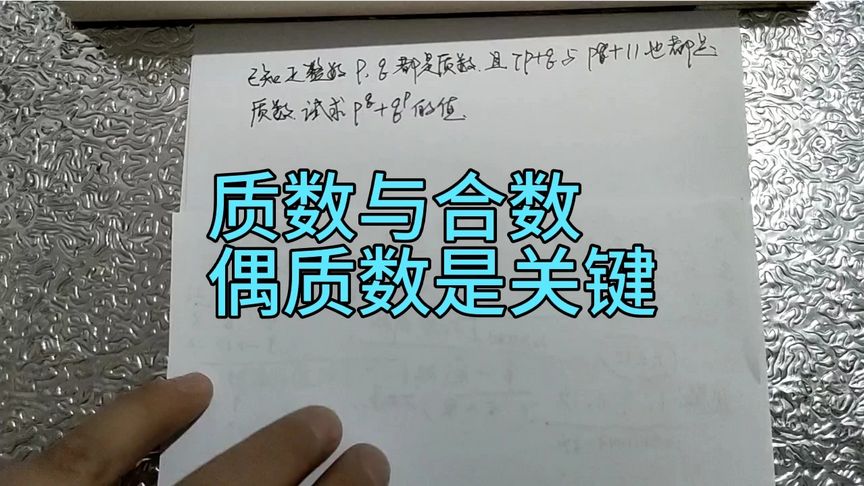 已知正整数 P、q 都是质数，且 7P+q 与 Pq+11 也都是
质数，试求 P^q+q^P 的值.
质数与合数
偶质数是关键